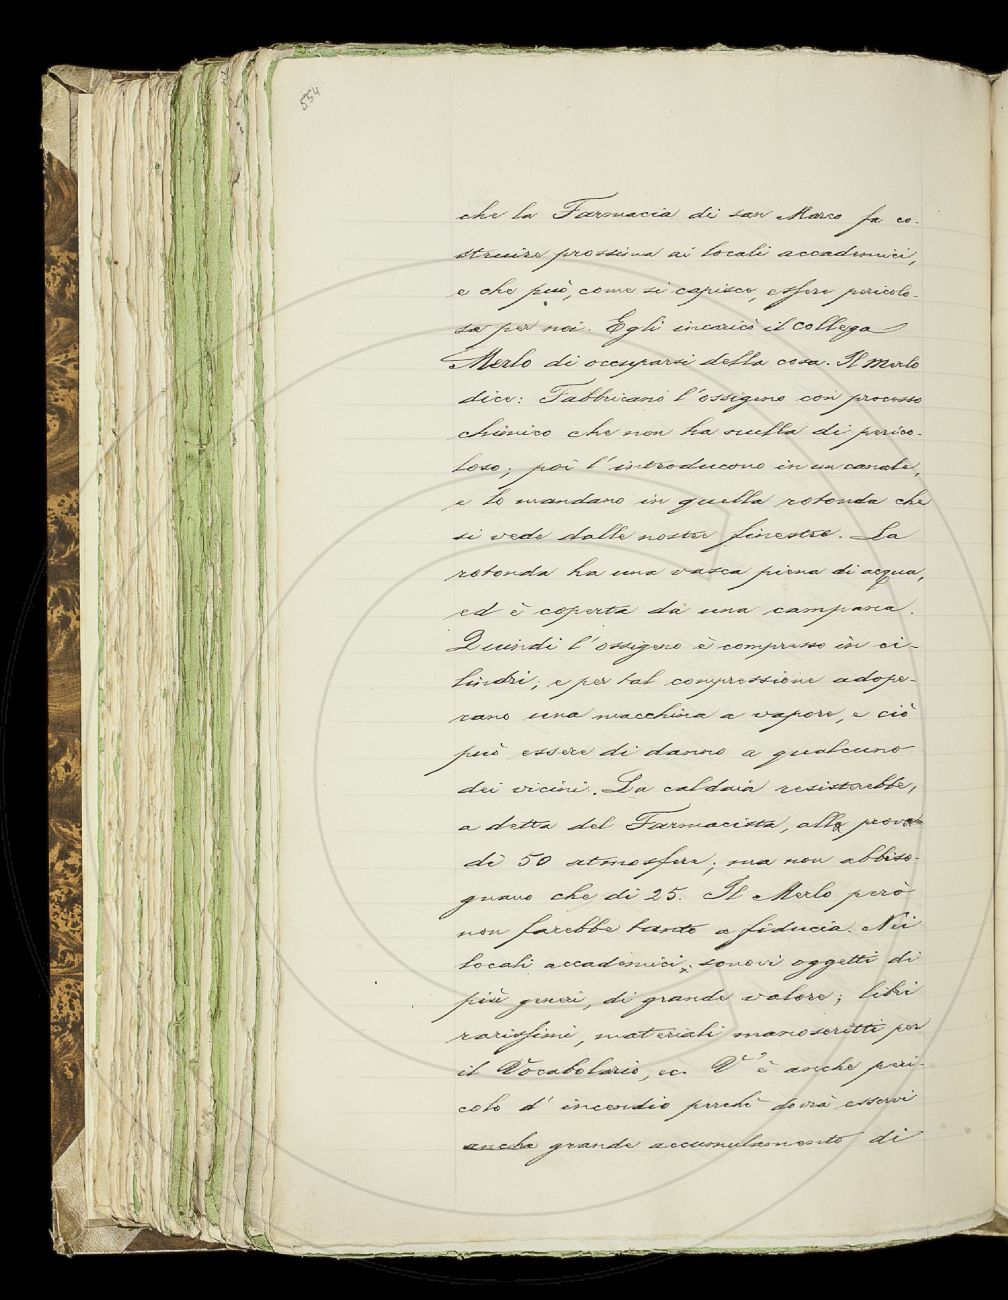 554
che la Farmacia di san Marco fa co-
struire prossima ai locali accademici,
e che può, come si capisce, essere pericolo-
sa per noi. Egli incaricò il collega
Merlo di occuparsi della cosa. Il Merlo
dice: Fabbricano l'ossigeno con processo
chimico che non ha nulla di perico-
loso; poi l'introducono in un canale,
e lo mandano in quella rotonda che
si vede dalle nostre finestre. La
rotonda ha una vasca piena di acqua,
ed è coperta da una campana.
Quindi l'ossigeno è compresso in ci-
lindri; e per tal compressione adope-
rano una macchina a vapore, e ciò
può essere di danno a qualcuno
dei vicini. La caldaia resisterebbe,
a detta del Farmacista, alla prova
di 50 atmosfere; ma non abbiso-
gnano che di 25. Il Merlo però
non farebbe tanto a fiducia. Nei
locali accademici sonovi oggetti di
più generi, di grande valore; libri
rarissimi, materiali manoscritti per
il Vocabolario, ec. V'è anche peri-
colo d'incendio perchè dovrà esservi
anche grande accumulamento di